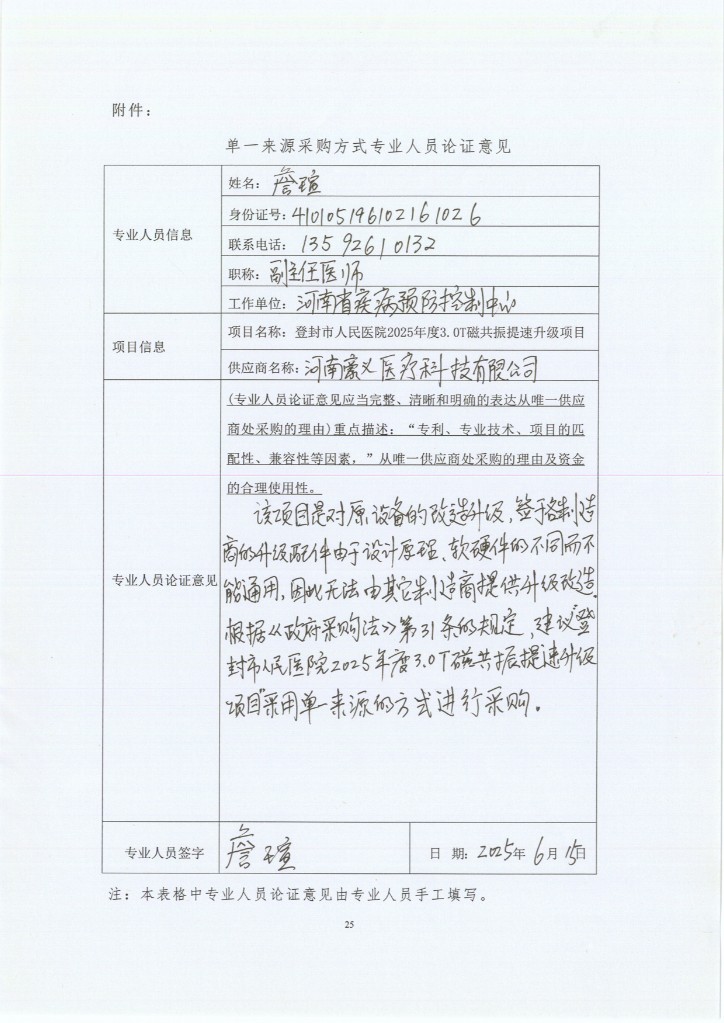 附件：
单一来源采购方式专业人员论证意见
专业人员信息
姓名：詹瑄
身份证号：410105196102161026
联系电话：13592610132
职称：副主任医师
工作单位：河南省疾病预防控制中心
项目信息
项目名称：登封市人民医院2025年度3.0T磁共振提速升级项目
供应商名称：河南豪义医疗科技有限公司
专业人员论证意见
(专业人员论证意见应当完整、清晰和明确的表达从唯一供应
商处采购的理由)重点描述：“专利、专业技术、项目的匹
配性、兼容性等因素，”从唯一供应商处采购的理由及资金
的合理使用性。
该项目是对原设备的改造升级，鉴于各制造
商的升级配件由于设计原理、软硬件的不同而不
能通用，因此无法由其它制造商提供升级改造。
根据《政府采购法》第31条的规定，建议“登
封市人民医院2025年度3.0T磁共振提速升级
项目”采用单一来源的方式进行采购。
专业人员签字
詹瑄
日 期：2025年 6月 15日
注：本表格中专业人员论证意见由专业人员手工填写。
25